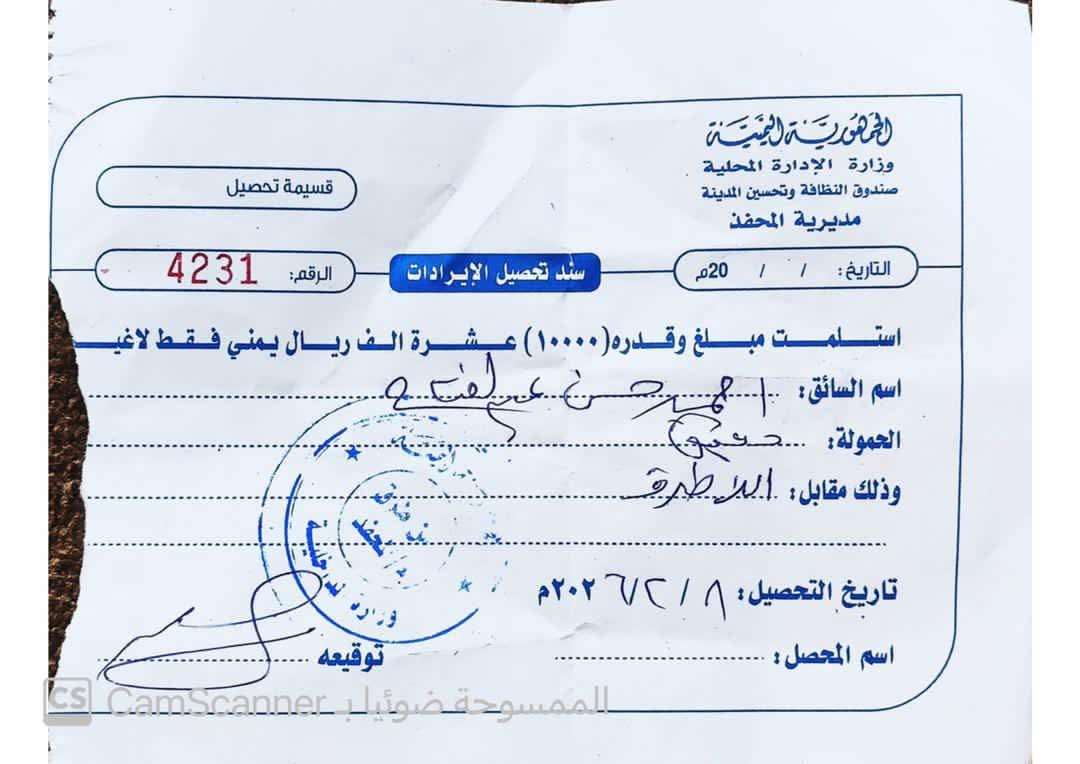 الجمهورية اليمنية
وزارة الإدارة المحلية
صندوق النظافة وتحسين المدينة
مديرية المحفد
قسيمة تحصيل
التاريخ: / / 20م
سند تحصيل الإيرادات
الرقم: 4231
استلمت مبلغ وقدره (١٠٠٠٠) عشرة الف ريال يمني فقط لاغيـ
اسم السائق: احمد حسن عبدالفتاح
الحمولة: دقيق
وذلك مقابل:
تاريخ التحصيل: ٨ / ٢ / ٢٠٢٦م
اسم المحصل:
توقيعه
وزارة
المحفد
CS CamScanner الممسوحة ضوئيا بـ